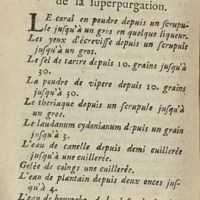 de la superpurgation.
LE coral en poudre depuis un scrupu-
le jusqu'à un gros en quelque liqueur.
Les yeux d'écrevisse depuis un scrupule
jusqu'à un gros.
Le sel de tartre depuis 10. grains jusqu'à
30.
La poudre de vipere depuis 10. grains
jusqu'à 30.
Le theriaque depuis un scrupule jusqu'à
un gros.
Le laudanum cydonianum depuis un grain
jusqu'à 3.
L'eau de canelle depuis demi cuillerée
jusqu'à une cuillerée.
Gelée de coings une cuillerée.
L'eau de plantain depuis deux onces jus-
qu'à 4.
L'eau de